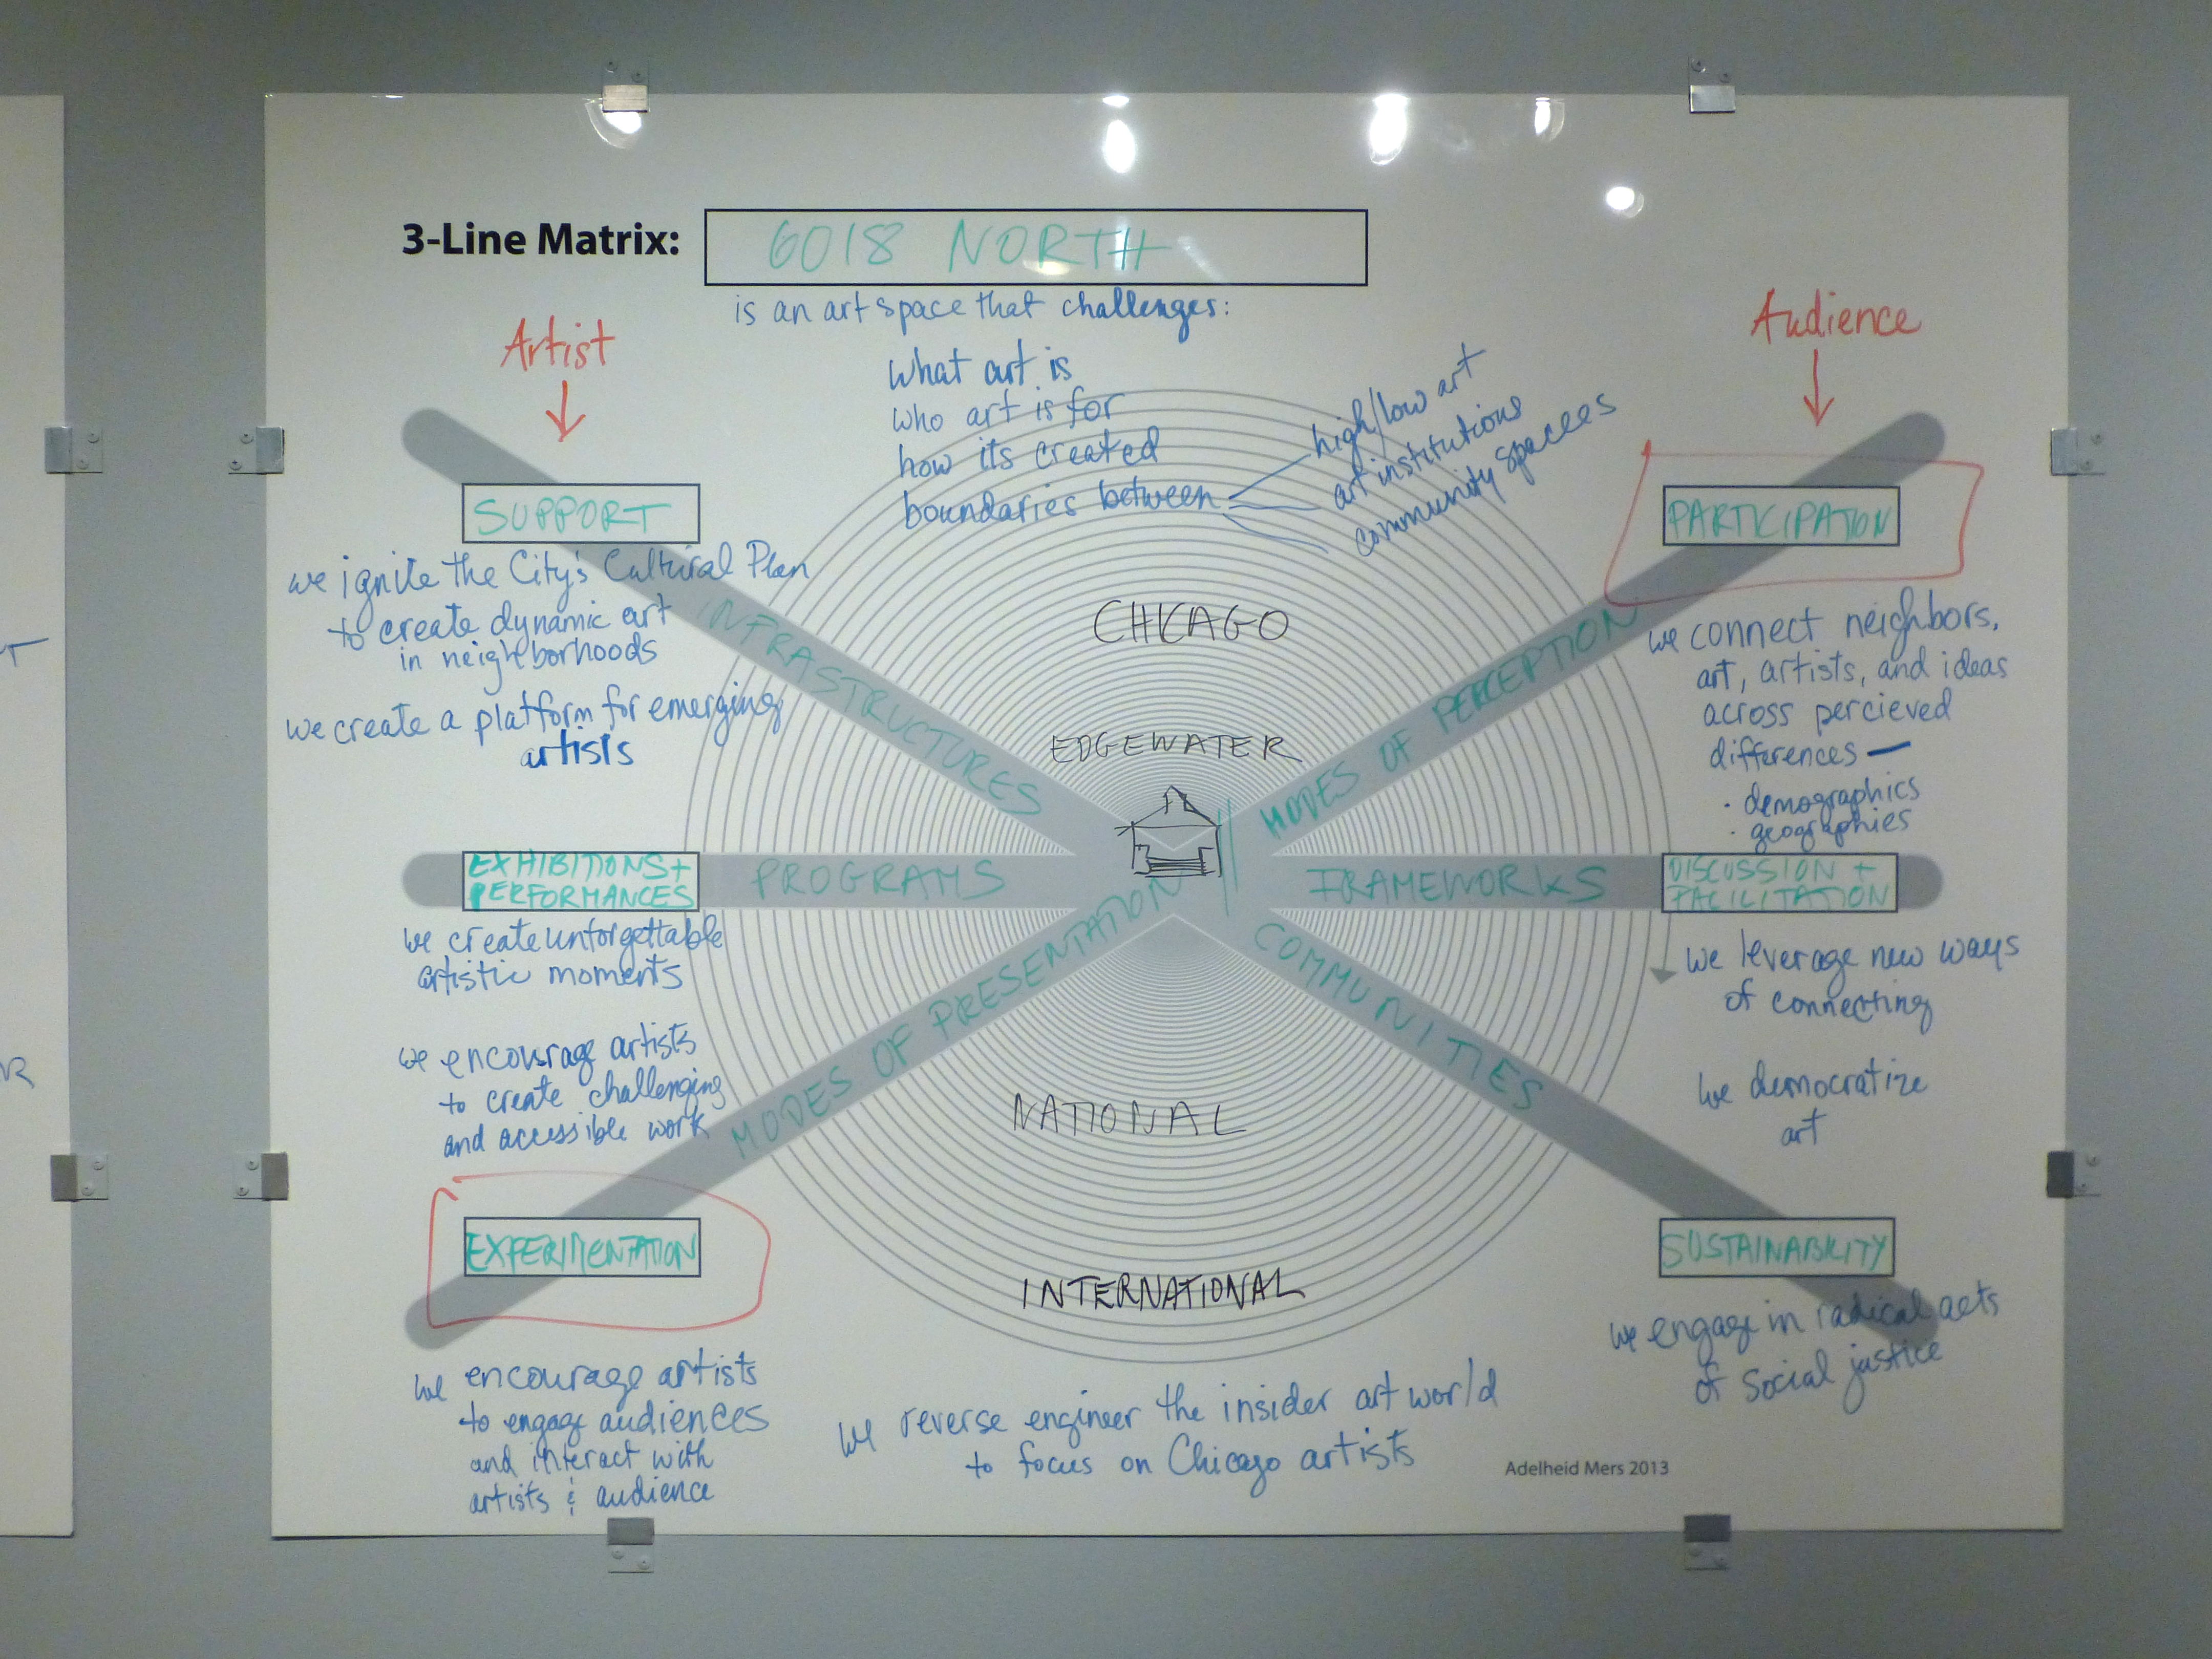 3-Line Matrix: 6018 NORTH
is an art space that challenges:
Artist
Audience
what art is
who art is for
how its created
boundaries between
high/low art
art institutions
community spacees
SUPPORT
we ignite the City's Cultural Plan
to create dynamic art
in neighborhoods
we create a platform for emerging
artists
INFRASTRUCTURES
CHICAGO
EDGEWATER
MODES OF PERCEPTION
PARTICIPATION
we connect neighbors,
art, artists, and ideas
across percieved
differences —
· demographics
· geographies
EXHIBITIONS +
PERFORMANCES
PROGRAMS
FRAMEWORKS
DISCUSSION +
FACILITATION
we create unforgettable
artistic moments
we encourage artists
to create challenging
and accessible work
MODES OF PRESENTATION
COMMUNITIES
we leverage new ways
of connecting
we democratize
art
NATIONAL
INTERNATIONAL
EXPERIMENTATION
we encourage artists
to engage audiences
and interact with
artists & audience
SUSTAINABILITY
we engage in radical acts
of social justice
we reverse engineer the insider art world
to focus on Chicago artists
Adelheid Mers 2013
T
R